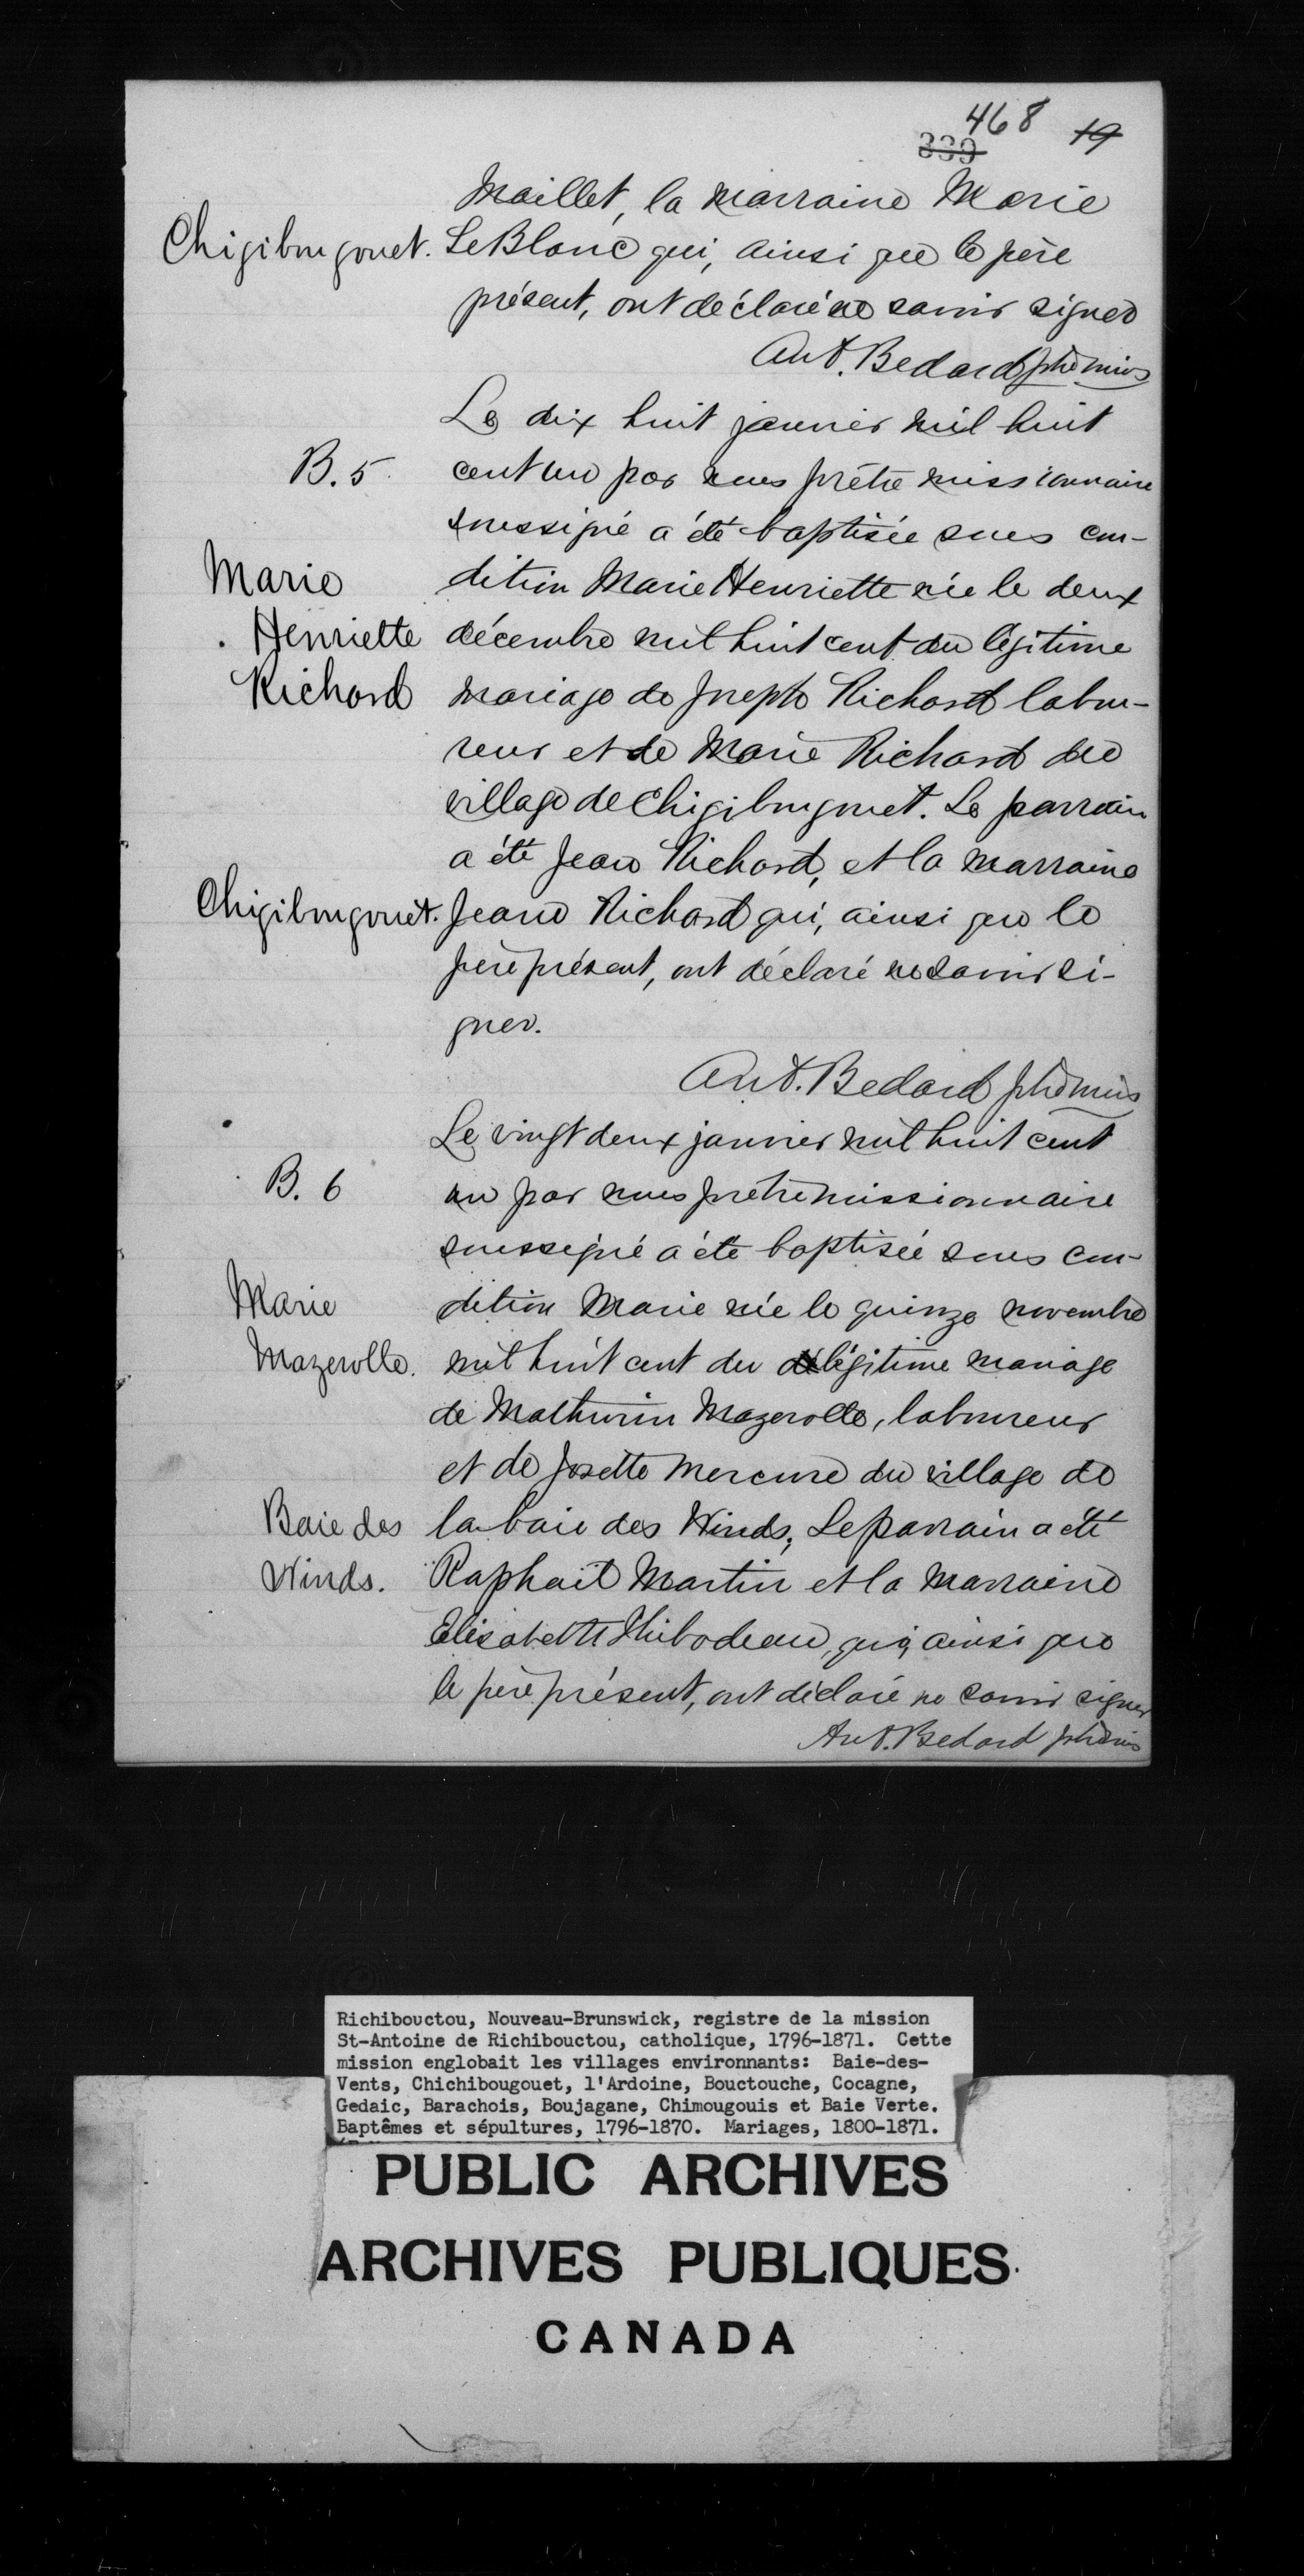 468
339 19
Maillet, la marraine Marie
Chigibougouet. LeBlanc qui, ainsi que le père
présent, ont déclaré ne savoir signer
Ant. Bedard ptre miss
Le dix huit janvier mil huit
B. 5. cent un par nous prêtre missionnaire
soussigné a été baptisée sous con-
Marie dition Marie Henriette née le deux
Henriette décembre mil huit cent du légitime
Richard mariage de Joseph Richard labou-
reur et de Marie Richard du
village de Chigibougouet. Le parrain
a été Jean Richard, et la marraine
Chigibougouet. Jeane Richard qui, ainsi que le
père présent, ont déclaré ne savoir si-
gner.
Ant. Bedard ptre miss
Le vingt deux janvier mil huit cent
B. 6 un par nous prêtre missionnaire
soussigné a été baptisée sous con-
Marie dition Marie née le quinze novembre
Mazerolle. mil huit cent du légitime mariage
de Mathurin Mazerolle, laboureur
et de Josette Mercure du village de
Baie des la baie des Winds, Le parrain a été
Winds. Raphail Martin et la marraine
Elisabeth Thibodeau, qui, ainsi que
le père présent, ont déclaré ne savoir signer
Ant. Bedard ptre miss
Richibouctou, Nouveau-Brunswick, registre de la mission
St-Antoine de Richibouctou, catholique, 1796-1871. Cette
mission englobait les villages environnants: Baie-des-
Vents, Chichibougouet, l'Ardoine, Bouctouche, Cocagne,
Gedaic, Barachois, Boujagane, Chimougouis et Baie Verte.
Baptêmes et sépultures, 1796-1870. Mariages, 1800-1871.
PUBLIC ARCHIVES
ARCHIVES PUBLIQUES
CANADA